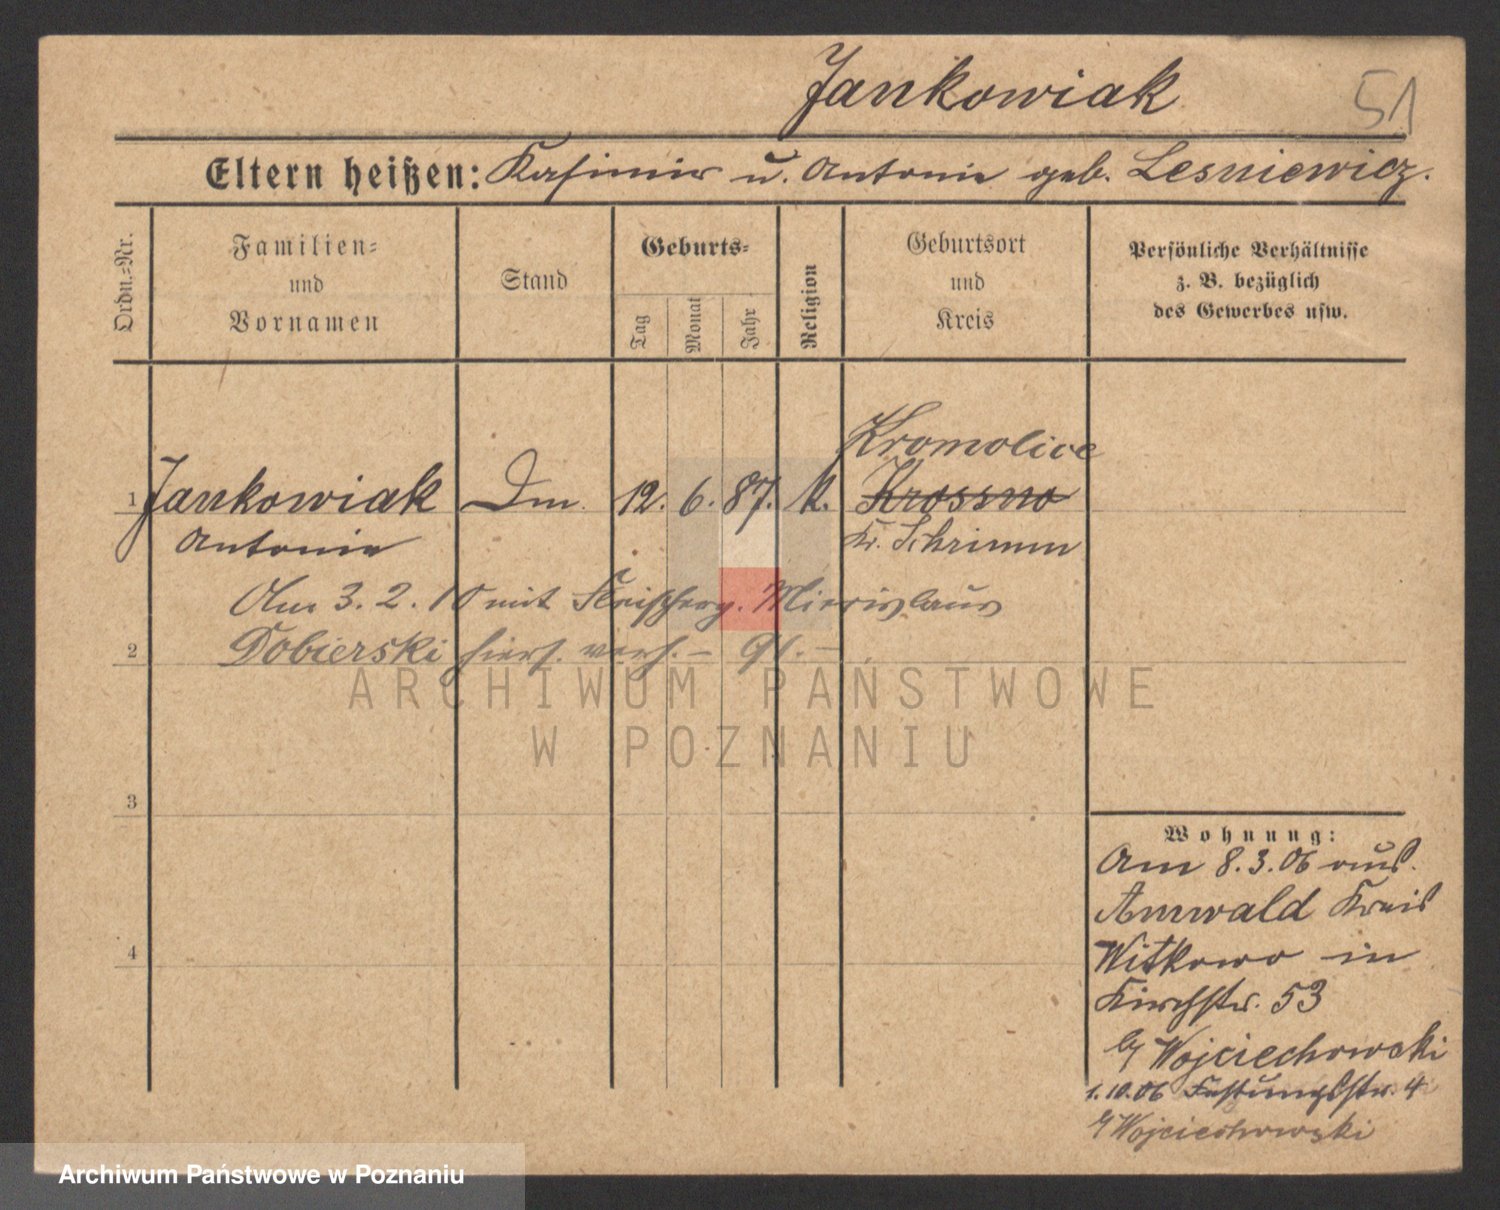 Jankowiak
51
Eltern heißen: Kasimir u. Antonie geb. Lesniewicz.
Ordn.=Nr.
Familien=
und
Vornamen
Stand
Geburts=
Tag
Monat
Jahr
Religion
Geburtsort
und
Kreis
Persönliche Verhältnisse
z. B. bezüglich
des Gewerbes usw.
Kromolice
1 Jankowiak Dm. 12. 6. 87. k. Krossno
Antonie Kr. Schrimm
Am 3. 2. 10 mit Fleischerg. Mieczislaus
2 Dobierski hiers. verh. –
ARCHIWUM PAŃSTWOWE
W POZNANIU
3
Wohnung:
Am 8.3.06 aus
Annwald Kreis
4 Witkowo in
Kirchstr. 53
b/ Wojciechowski
1.10.06 Festungsstr. 4
b/ Wojciechowski
Archiwum Państwowe w Poznaniu